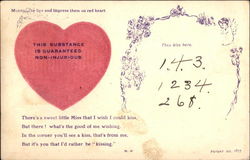 Moisten the lips and impress them on red heart
THIS SUBSTANCE
IS GUARANTEED
NON-INJURIOUS
This was here.
143.
1234
268.
There's a sweet little Miss that I wish I could kiss,
But there! what's the good of me wishing.
In the corner you'll see a kiss, that's from me,
But it's you that I'd rather be "kissing."